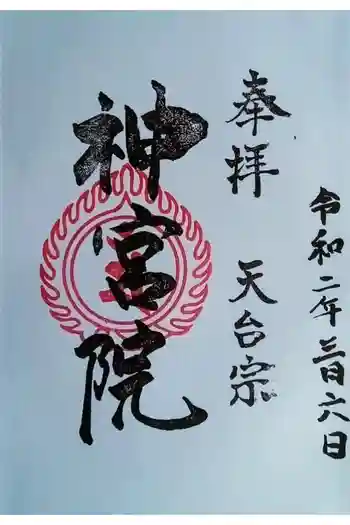 令和二年三月六日
奉拝　天台宗
神宮院